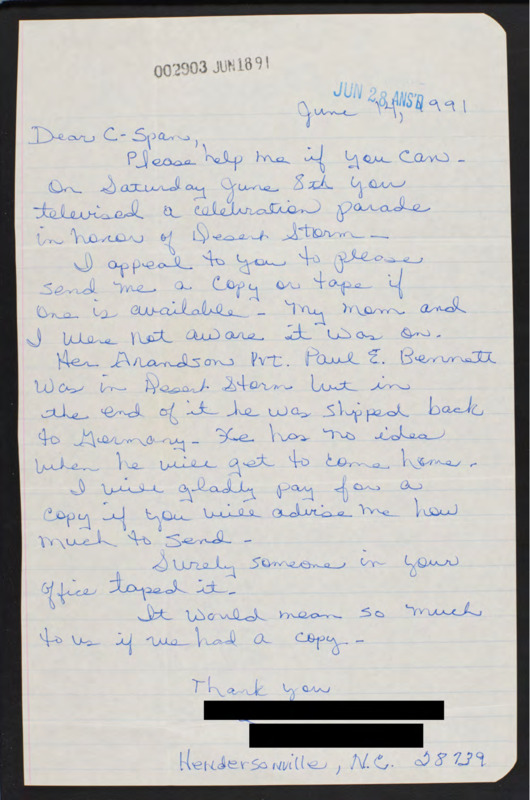 002903 JUN 18 91
JUN 28 ANS'D
June 14, 1991
Dear C-Span,
Please help me if you can -
On Saturday June 8th you
televised a celebration parade
in honor of Desert Storm -
I appeal to you to please
send me a copy or tape if
one is available - My mom and
I were not aware it was on.
Her Grandson Pvt. Paul E. Bennett
was in Desert Storm but in
the end of it he was shipped back
to Germany - He has no idea
when he will get to come home.
I will gladly pay for a
copy if you will advise me how
much to send -
Surely someone in your
office taped it.
It would mean so much
to us if we had a copy -
Thank you
Hendersonville, N.C. 28739